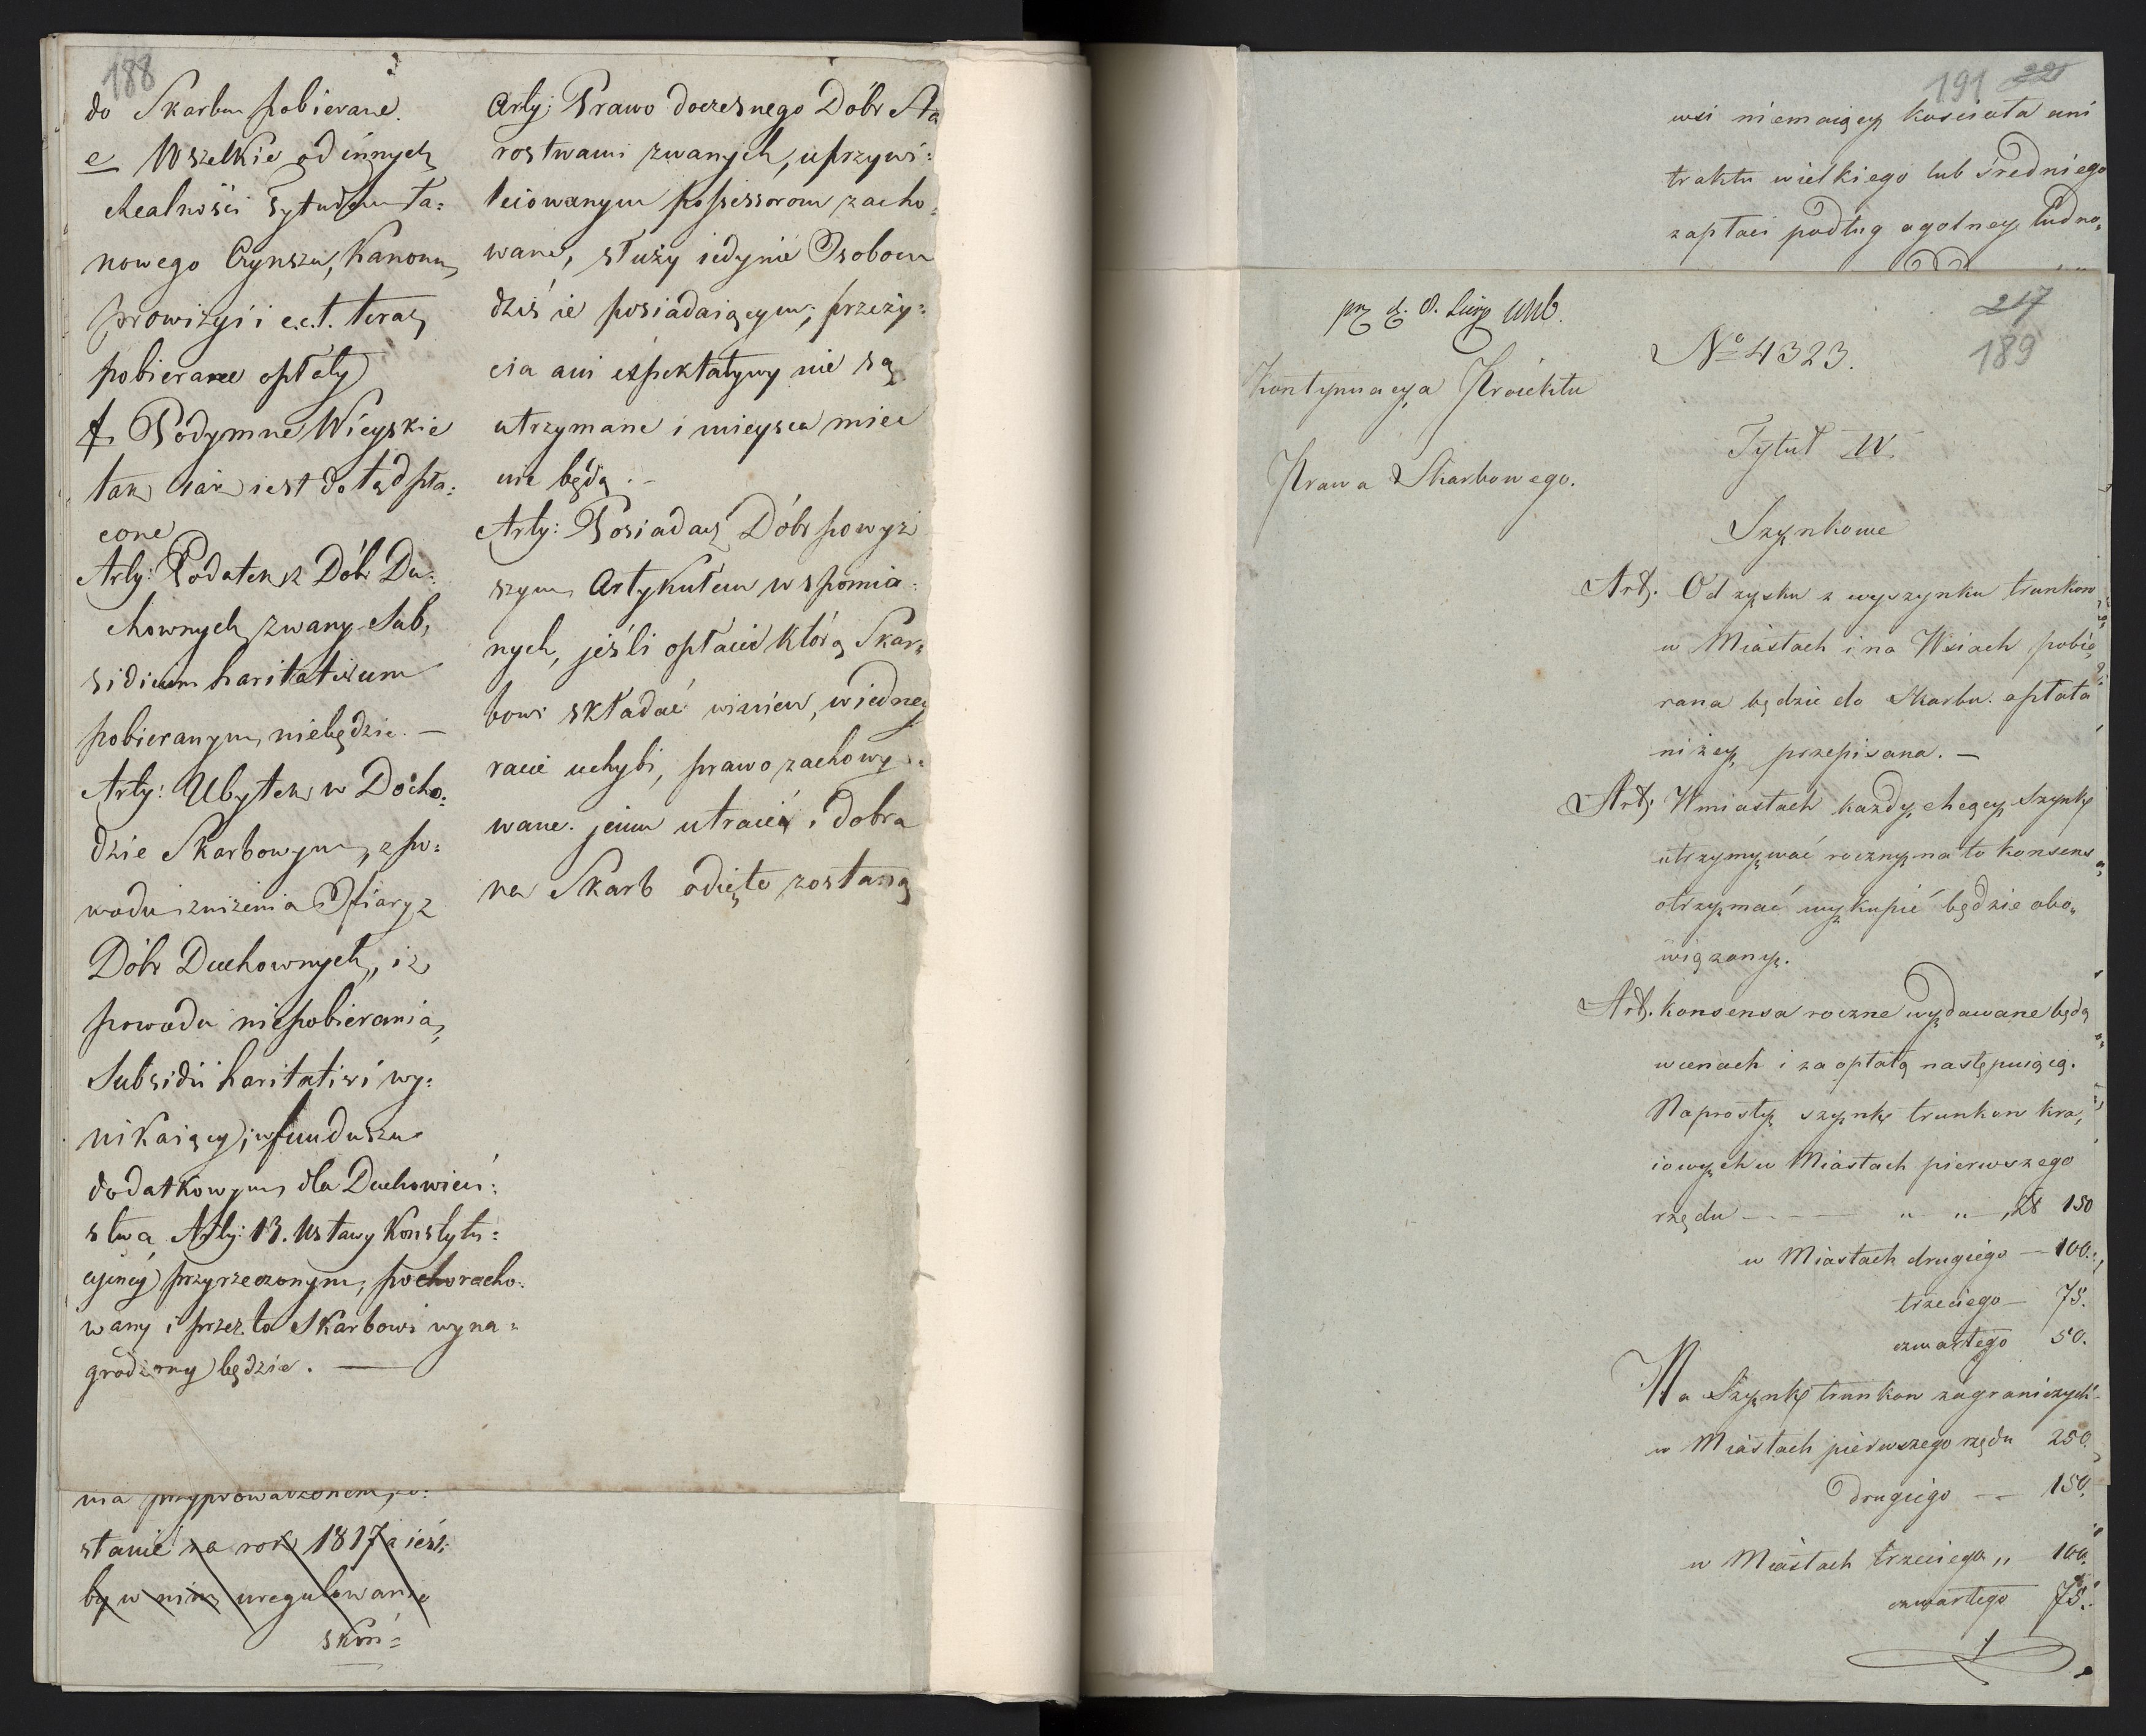 188
do Skarbu pobierane.
e Wszelkie od innych
Realności Tytułem Ta=
nowego Czynszu, Kanonu,
prowizyi i e.c.t. teraz
pobierane opłaty
f. Podymne Wieyskie
tak iak iest dotąd pła=
cone
Arty: Podatek z Dóbr Du=
chownych zwany Sub,
sidium haritativum
pobieranym niebędzie. —
Arty: Ubytek w Docho=
dzie Skarbowym, z po=
wodu zniżenia Ofiary z
Dóbr Duchownych, i z
powodu niepobierania,
Subsidii haritativi wy=
nikaiący, w funduszu
dodatkowym dla Duchowień=
stwa Arty: 13. Ustawy Konstytu=
cyiney przyrzeczonym, poracho=
wany i przez to Skarbowi wyna=
grodzony będzie. —
nia przyprowadzonem, zo=
stanie na rok 1817 a ieśli
by w nim uregulowanie
skoń=
Arty: Prawo doczesnego Dóbr Sta
rostwami zwanych, uprzywi=
leiowanym possessorom zacho=
wane, służy iedynie Osobom
dziś ie posiadaiącym; przeży=
cia ani exspektatywy nie są
utrzymane i mieysca mieć
nie będą. —
Arty: Posiadacz Dóbr powyż
szym Artykułem wspomia=
nych, jeśli opłacie którą Skar=
bowi składać winien, w iedney
racie uchybi, prawo zachowy=
wane jemu utraci i dobra
na Skarb odięte zostaną
191 22
wsi niemaiącey kościoła ani
traktu wielkiego lub średniego
zapłaci podług ogolney ludno„
217
189
Kontynuacya Proiektu
Prawa Skarbowego.
No 4323.
Tytuł IV.
Szynkowe
Art. Od zysku z wyszynku trunkow
w Miastach i na Wsiach pobie„
rana będzie do Skarbu opłata
niżey przepisana. —
Art. W miastach każdy chcący Szynk
utrzymywać roczny na to konsens
otrzymać wykupić będzie obo„
wiązany.
Art. Konsensa roczne wydawane będą
w cenach i za opłatą następuiącą.
Na prosty szynk trunkow kra„
iowych w Miastach pierwszego
rzędu — — „ „ Zł 150
w Miastach drugiego — 100.
trzeciego — 75.
czwartego 50.
Na Szynk trunkow zagranicznych
w Miastach pierwszego rzędu 250.
drugiego — 150.
w Miastach trzeciego „ 100.
czwartego 75.